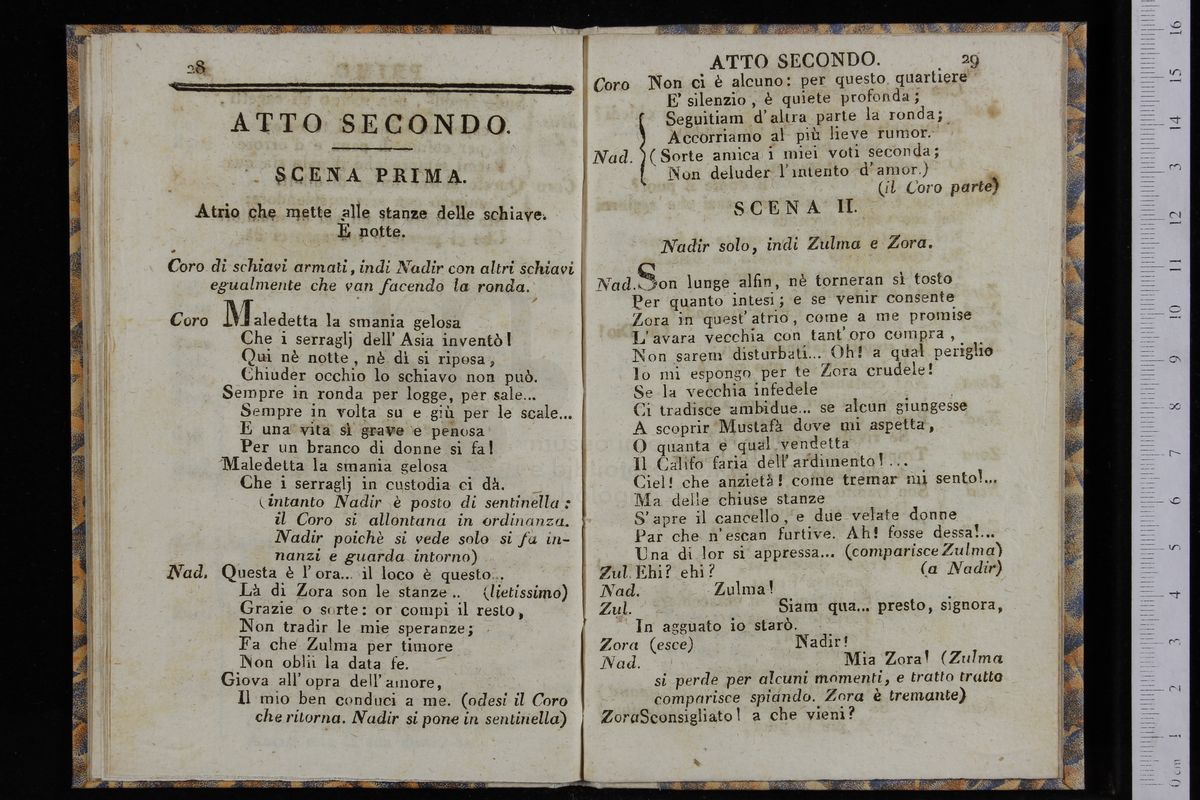 28
ATTO SECONDO.
SCENA PRIMA.
Atrio che mette alle stanze delle schiave.
È notte.
Coro di schiavi armati, indi Nadir con altri schiavi
egualmente che van facendo la ronda.
Coro Maledetta la smania gelosa
Che i serraglj dell' Asia inventò!
Qui nè notte, nè dì si riposa,
Chiuder occhio lo schiavo non può.
Sempre in ronda per logge, per sale...
Sempre in volta su e giù per le scale...
E una vita sì grave e penosa
Per un branco di donne si fa!
Maledetta la smania gelosa
Che i serraglj in custodia ci dà.
(intanto Nadir è posto di sentinella:
il Coro si allontana in ordinanza.
Nadir poichè si vede solo si fa in-
nanzi e guarda intorno)
Nad. Questa è l'ora... il loco è questo...
Là di Zora son le stanze.. (lietissimo)
Grazie o sorte: or compi il resto,
Non tradir le mie speranze;
Fa che Zulma per timore
Non oblii la data fe.
Giova all' opra dell' amore,
Il mio ben conduci a me. (odesi il Coro
che ritorna. Nadir si pone in sentinella)
ATTO SECONDO. 29
Coro Non ci è alcuno: per questo quartiere
E' silenzio, è quiete profonda;
Seguitiam d'altra parte la ronda;
Accorriamo al più lieve rumor.
Nad. (Sorte amica i miei voti seconda;
Non deluder l'intento d'amor.)
(il Coro parte)
SCENA II.
Nadir solo, indi Zulma e Zora.
Nad. Son lunge alfin, nè torneran sì tosto
Per quanto intesi; e se venir consente
Zora in quest' atrio, come a me promise
L'avara vecchia con tant' oro compra,
Non sarem disturbati... Oh! a qual periglio
Io mi espongo per te Zora crudele!
Se la vecchia infedele
Ci tradisce ambidue... se alcun giungesse
A scoprir Mustafà dove mi aspetta,
O quanta e qual vendetta
Il Califo faria dell' ardimento!...
Ciel! che anzietà! come tremar mi sento!...
Ma delle chiuse stanze
S'apre il cancello, e due velate donne
Par che n'escan furtive. Ah! fosse dessa!...
Una di lor si appressa... (comparisce Zulma)
Zul. Ehi? ehi? (a Nadir)
Nad. Zulma!
Zul. Siam qua... presto, signora,
In agguato io starò.
Zora (esce) Nadir!
Nad. Mia Zora! (Zulma
si perde per alcuni momenti, e tratto tratto
comparisce spiando. Zora è tremante)
Zora Sconsigliato! a che vieni?
0 cm 1 2 3 4 5 6 7 8 9 10 11 12 13 14 15 16